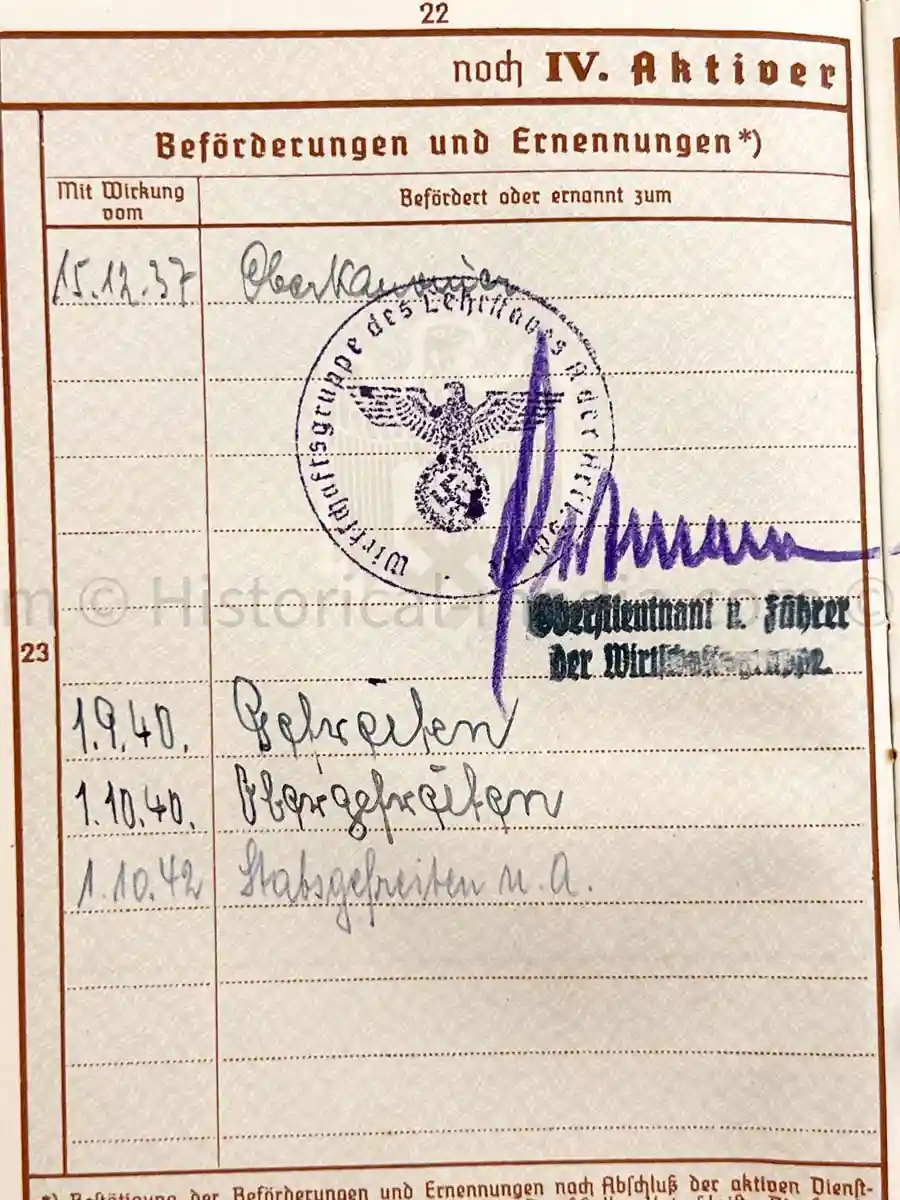 22
noch IV. Aktiver
Beförderungen und Ernennungen*)
Mit Wirkung
vom
Befördert oder ernannt zum
15.12.37 Oberkanonier
Wirtschaftsgruppe des Lehrstabes A der Artl. Sch.
Oberstleutnant u. Führer
der Wirtschaftsgruppe.
© Historical-
23
1.9.40. Gefreiten
1.10.40. Obergefreiten
1.10.42 Stabsgefreiten u. A.
*) Bestätigung der Beförderungen und Ernennungen nach Abschluß der aktiven Dienst-